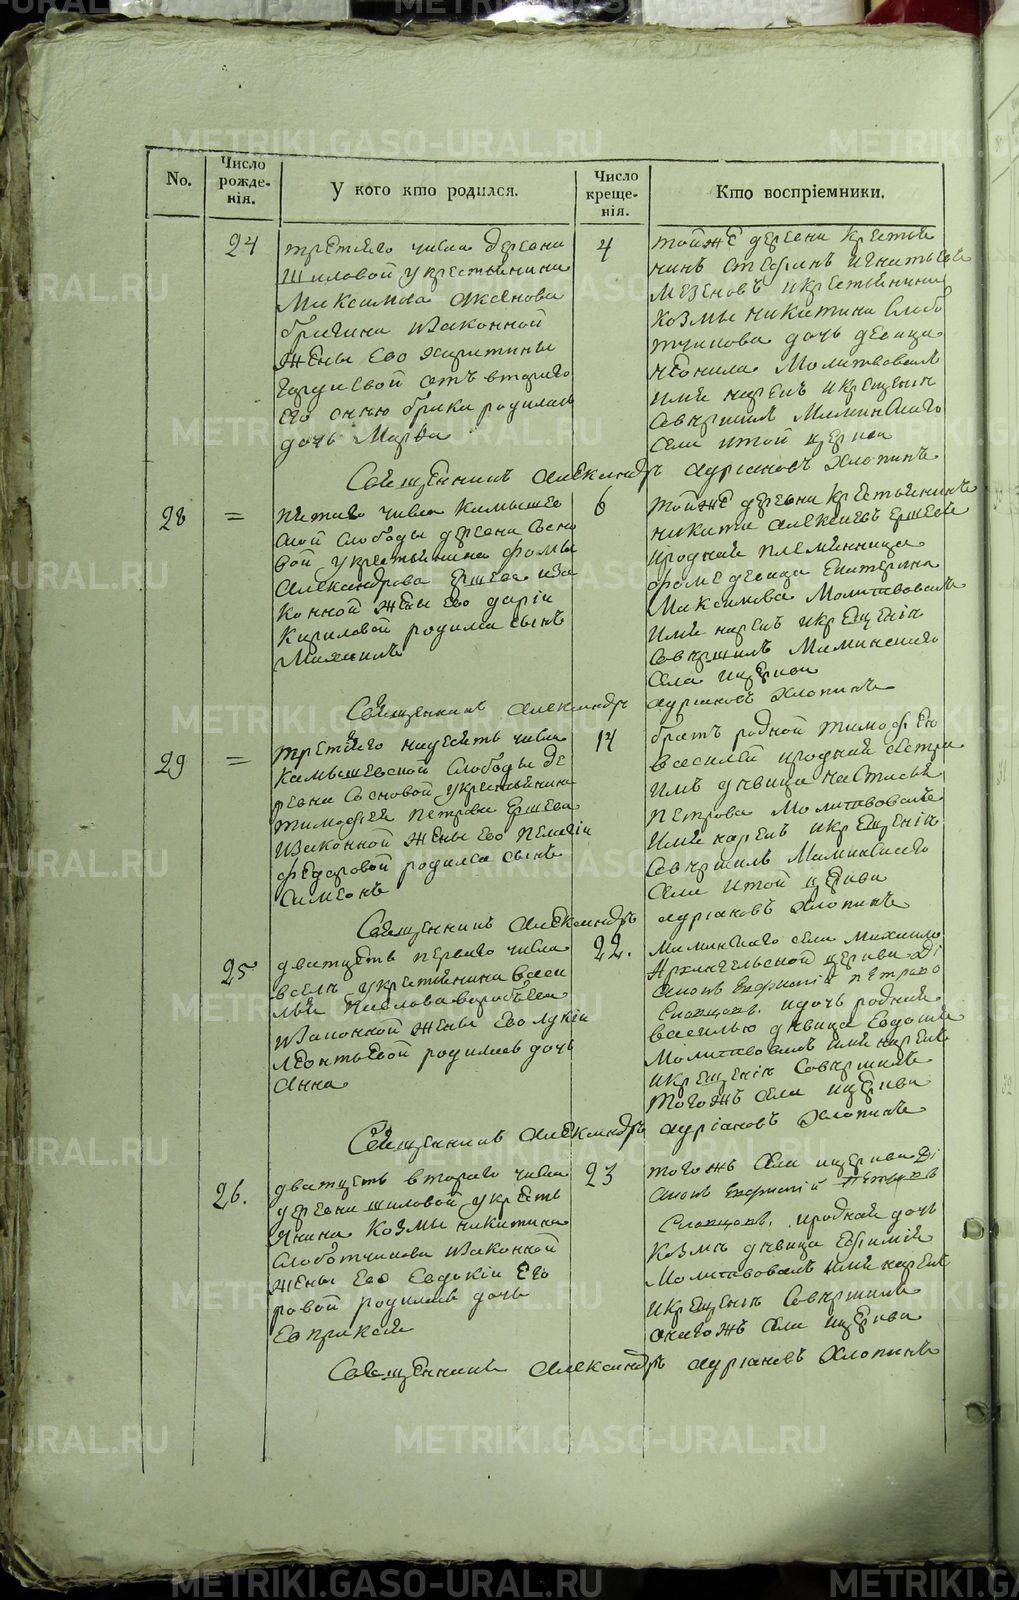 No.
Число рожде-
нія.
У кого кто родился.
Число креще-
нія.
Кто воспріемники.
24
третяго числа деревни
Шиловой у крестьянина
Максима Аксенова
брагина изаконной
жены Его харитины
гордиевой отъ второго
Его
родилась
дочь Марва
4
тойже деревни крестья
нинъ Стефанъ Игнатьевъ
Мезеновъ икрестьянина
Козмы никитина Слобо
тчикова дочь девица
неонила Молитвовалъ
имя нарекъ икрещенiи
Совершилъ Маминскаго
Села итой церкви
Священникъ Александръ адриановъ Хлопинъ
28
=
пятаго числа Камышев
ской слободы деревни Сосно
вой у крестьянина фомы
Александрова Ершева иза
конной жены Его дарiи
Кириловой родился сынъ
Михаилъ
6
тойже деревни крестьянинъ
никита Алексиевъ Ершевъ
иродная племянница
фоме девица Екатерина
Максимова Молитвовалъ
Имя нарекъ икрещенiи
Совершилъ Маминскаго
Села ицеркви
Священникъ Александръ адриановъ Хлопинъ
29
=
третяго надесять числа
Камышевской Слободы де
ревни Сосновой укрестьянина
тимофея петрова Ершева
изаконной жены Его пелагiи
федоровой родился сынъ
Симеонъ
14
братъ родной тимофею
василей иродная сестра
имъ девица настасья
петрова Молитвовалъ
Имя нарекъ икрещенiи
Совершилъ Маминскаго
Села итой церкви
Священникъ Александръ адриановъ Хлопинъ
25
дватцеть перваго числа
всель укрестьянина васи
лья Павлова воробьева
изаконной жены Его лукiи
леонтьевой родилась дочь
Анна
22.
маминскаго села Михаило
Архангельской церкви Дi
аконъ Евфимiй петровъ
Словцовъ. идочь родная
василью девица Евдокия
Молитвовалъ имя нарекъ
икрещенiи Совершилъ
тогожъ Села ицеркви
Священникъ Александръ адрiановъ Хлопинъ
26.
дватцеть втораго числа
деревни шиловой у кресть
янина Козмы никитина
Слоботчикова изаконной
жены Его Евдокiи Его
ровой родилась дочь
Евпраксия
23
тогожъ Села ицеркви Дi
аконъ Евфимiй Петровъ
Словцовъ, иродная дочь
Козмы девица Евфимiя
Молитвовалъ имя нарекъ
икрещенiи Совершилъ
онагожъ Села ицеркви
Священникъ Александръ адрiановъ Хлопинъ
METRIKI.GASO-URAL.RU